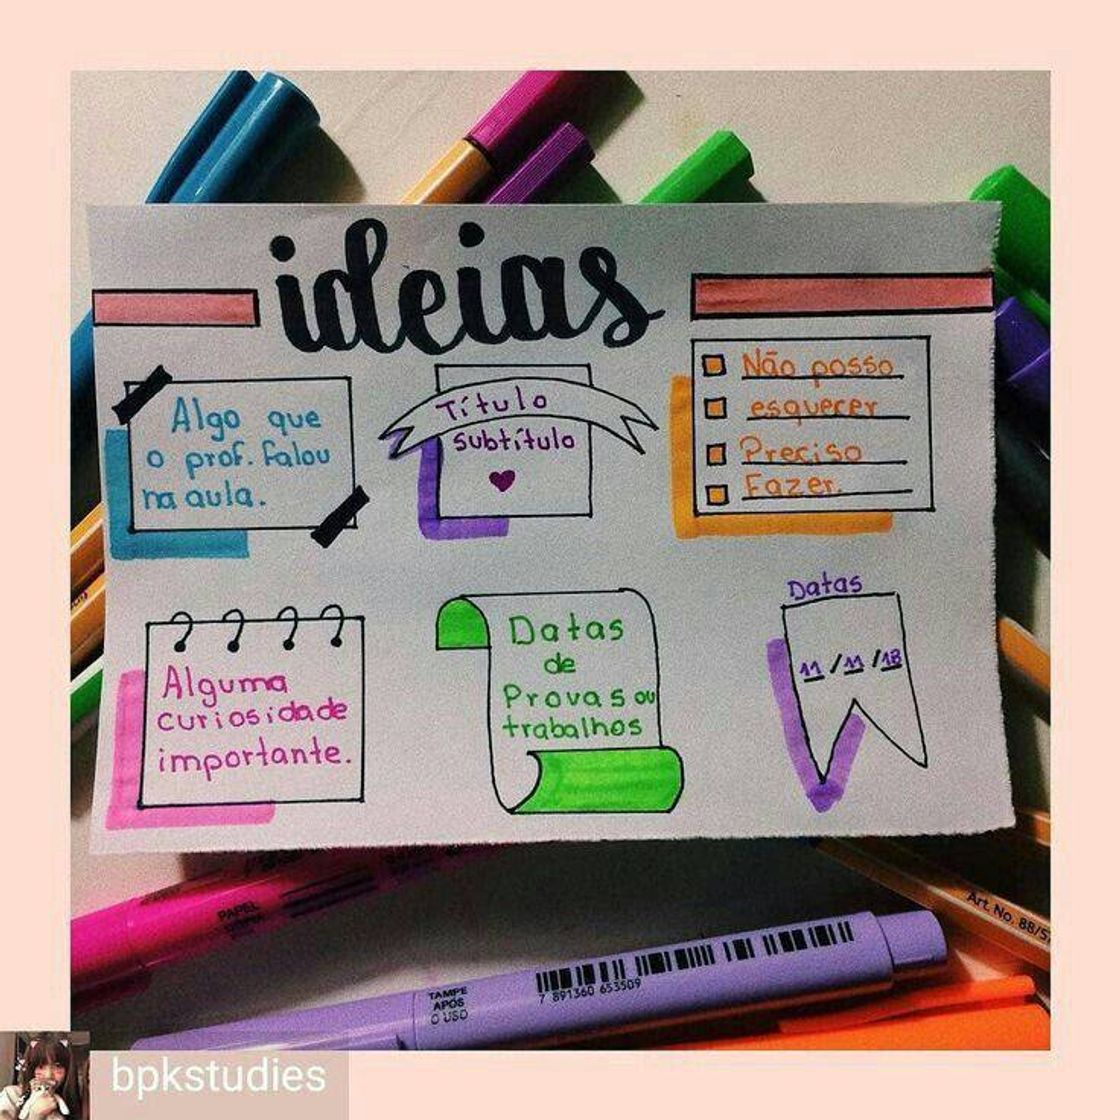 ideias
Algo que
o prof. falou
na aula.
Título
subtítulo
Não posso
esquecer
Preciso
Fazer.
Alguma
curiosidade
importante.
Datas
de
Provas ou
trabalhos
Datas
11/11/18
PAPEL
Art. No. 88/5
TAMPE
APÓS
O USO
7 891360 653509
bpkstudies